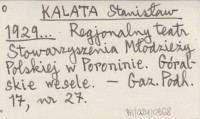 KALATA Stanisław
1929... Regjonalny teatr
Stowarzyszenia Młodzieży
Polskiej w Poroninie. Góral-
skie wesele. — Gaz. Podh.
17, nr 27.